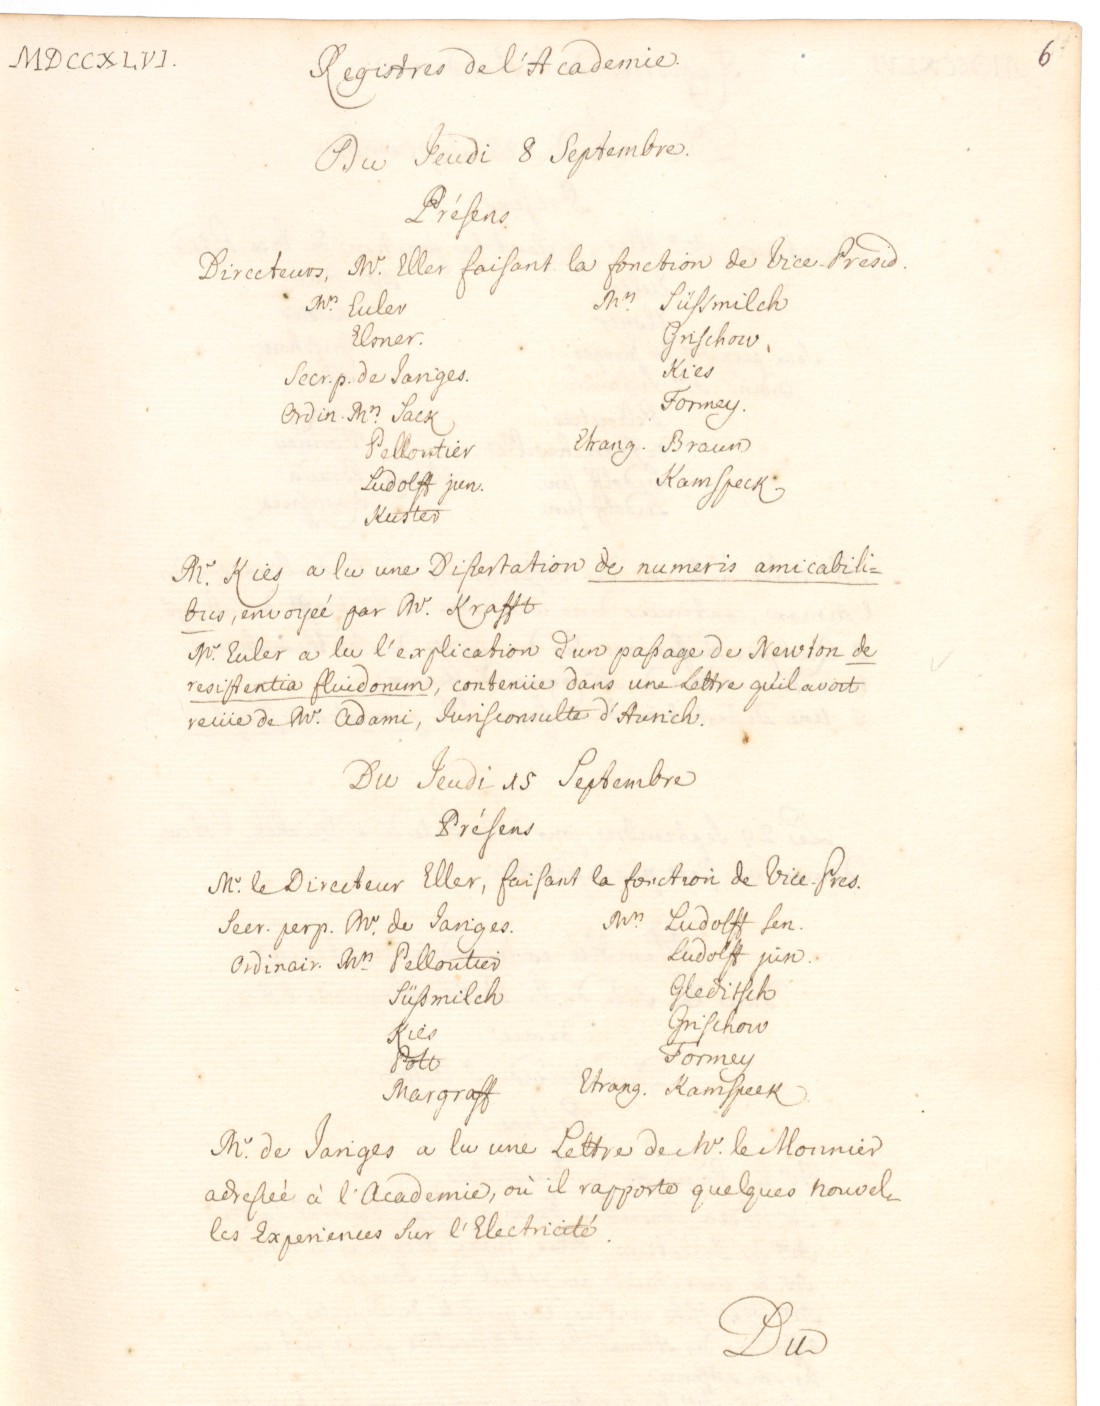 MDCCXLVI.
Registres de l'Academie.
6
Du Jeudi 8 Septembre.
Présens
Directeurs, Mr. Eller faisant la fonction de Vice-Presid.
Mrs. Euler
Elsner.
Secr. p. de Jariges.
Ordin. Mrs. Sack
Pelloutier
Ludolff jun.
Kuster
Mrs. Süssmilch
Grischow,
Kies
Formey.
Etrang. Braun
Kamspeck
Mr. Kies a lu une Dissertation de numeris amicabili=
bus, envoyeé par Mr. Krafft
Mr. Euler a lu l'explication d'un passage de Newton de
resistentia fluidorum, conteniie dans une Lettre qu'il avoit
reciie de Mr. Adami, Jurisconsulte d'Aurich.
Du Jeudi 15 Septembre
Présens
Mr. le Directeur Eller, faisant la fonction de Vice-Pres.
Secr. perp. Mr. de Jariges.
Ordinair. Mrs. Pelloutier
Süssmilch
Kies
Pott
Margraff
Mrs. Ludolff sen.
Ludolff jun.
Gleditsch
Grischow
Formey
Etrang. Kamspeek
Mr. de Jariges a lu une Lettre de Mr. le Monnier
adresseé à l'Academie, où il rapporte quelques nouvel-
les Experiences sur l'Electricité.
Du